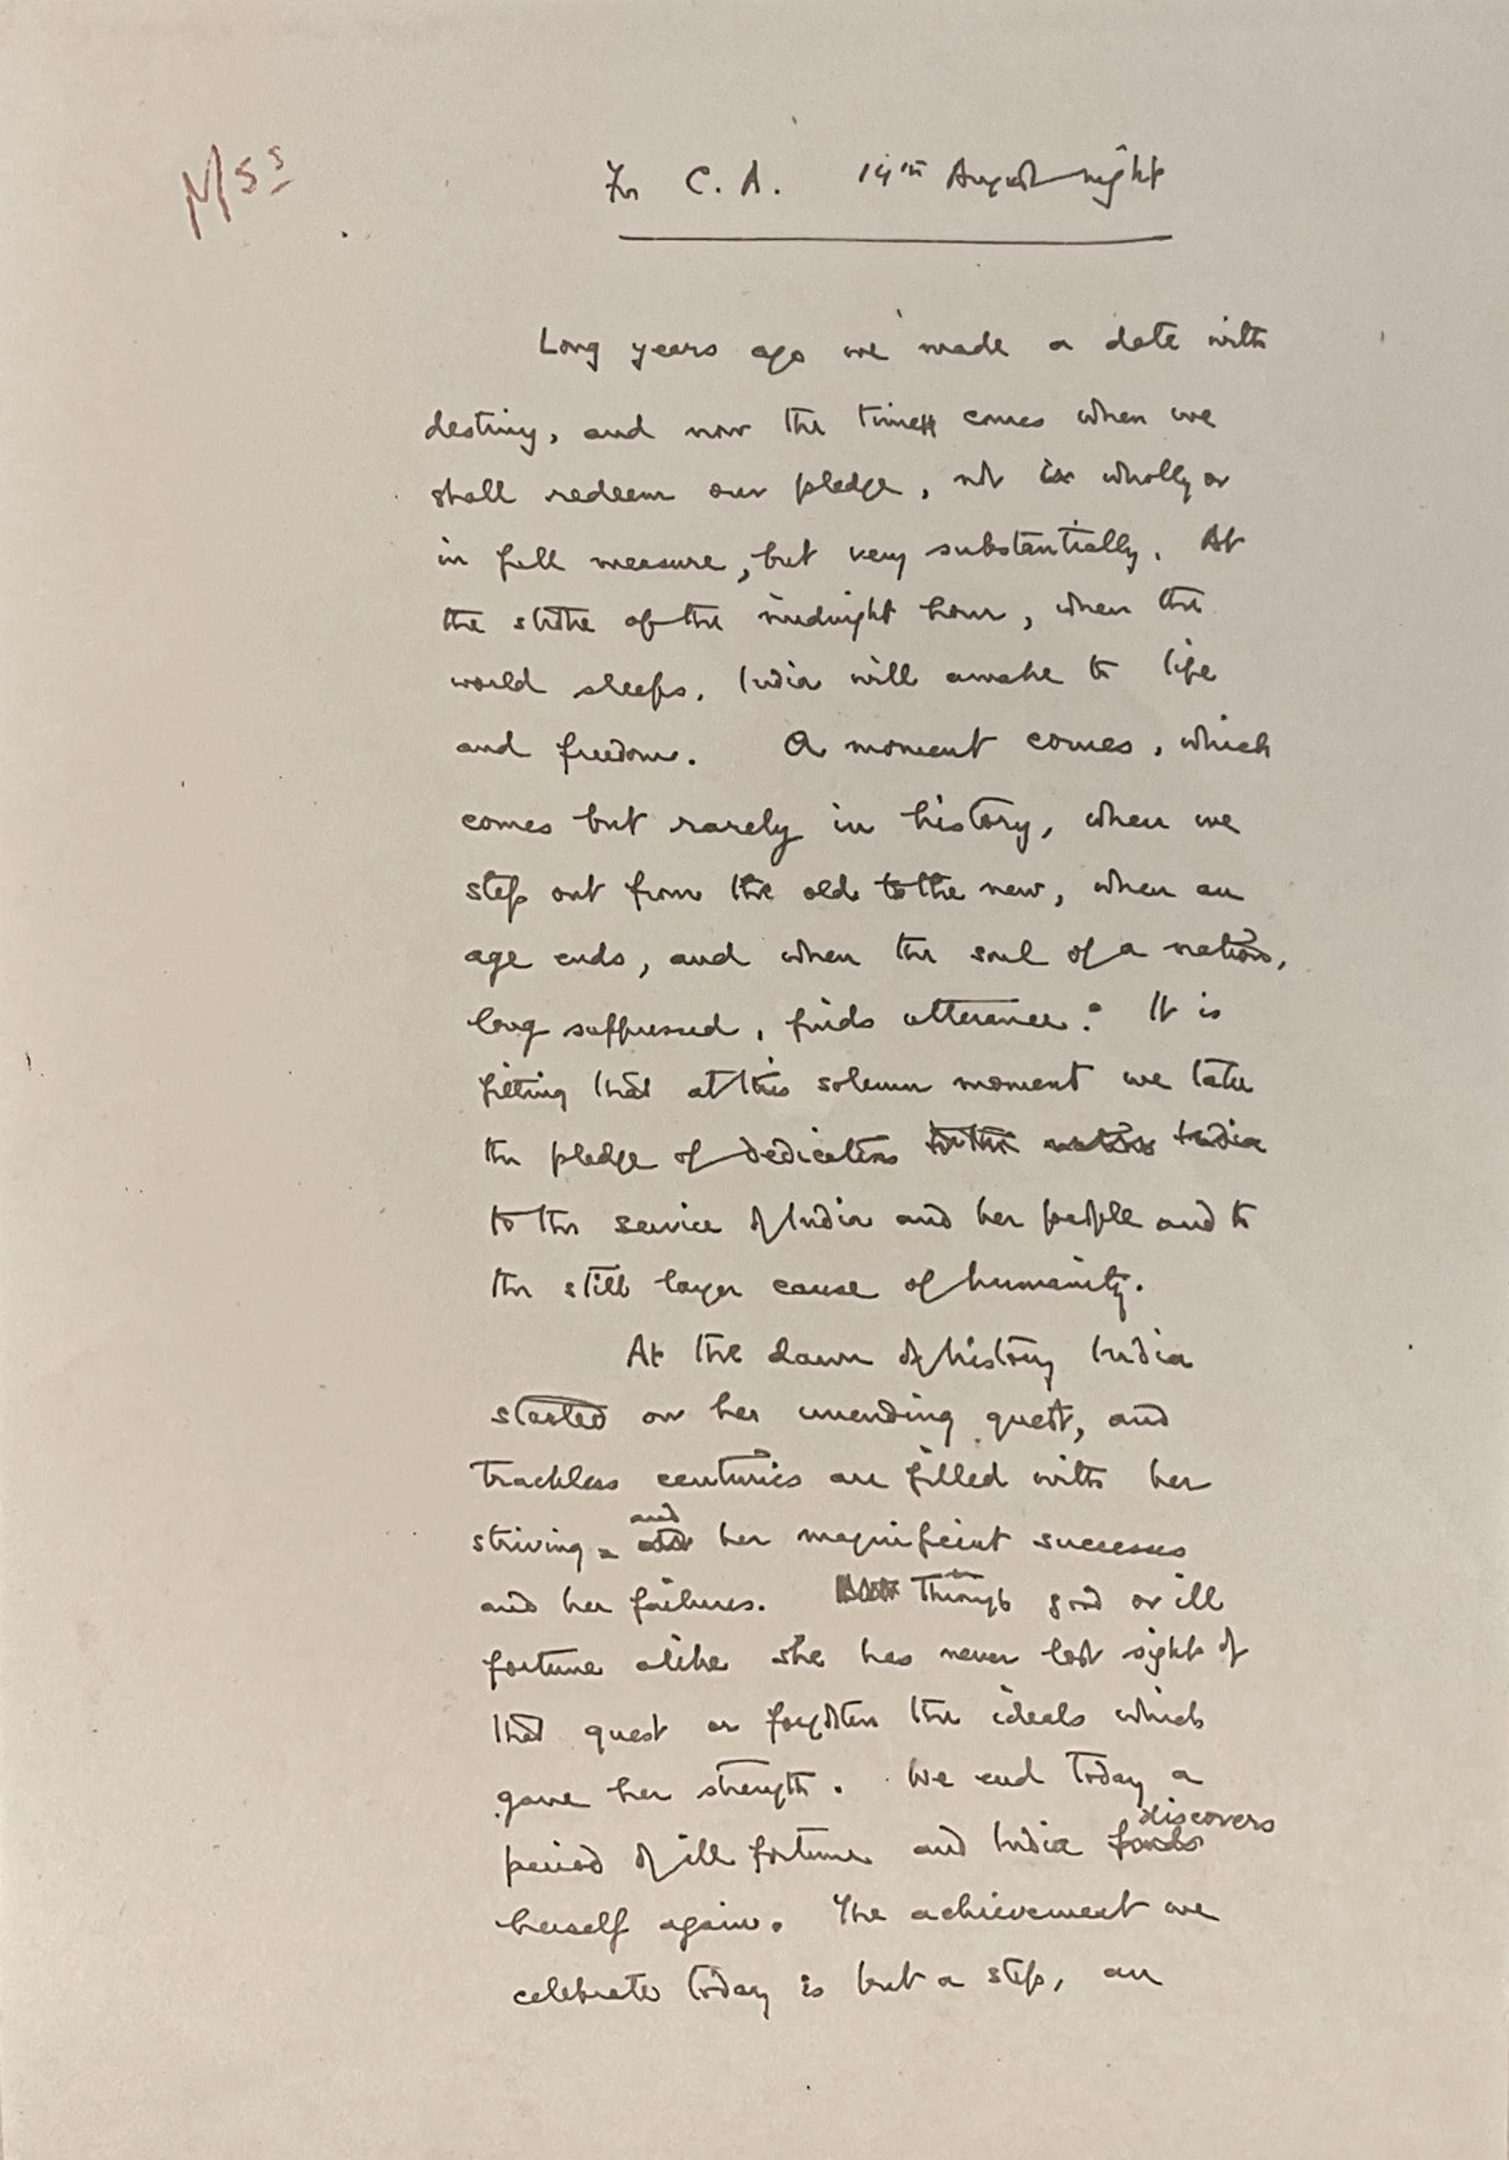 Mss
For C. A. 14th August night
Long years ago we made a date with
destiny, and now the time comes when we
shall redeem our pledge, not in wholly or
in full measure, but very substantially. At
the stroke of the midnight hour, when the
world sleeps, India will awake to life
and freedom. A moment comes, which
comes but rarely in history, when we
step out from the old to the new, when an
age ends, and when the soul of a nation,
long suppressed, finds utterance. It is
fitting that at this solemn moment we take
the pledge of dedication to the nation India
to the service of India and her people and to
the still larger cause of humanity.
At the dawn of history India
started on her unending quest, and
trackless centuries are filled with her
and
striving her magnificent successes
and her failures. Through good or ill
fortune alike she has never lost sight of
that quest or forgotten the ideals which
gave her strength. We end today a
discovers
period of ill fortune and India finds
herself again. The achievement we
celebrate today is but a step, an